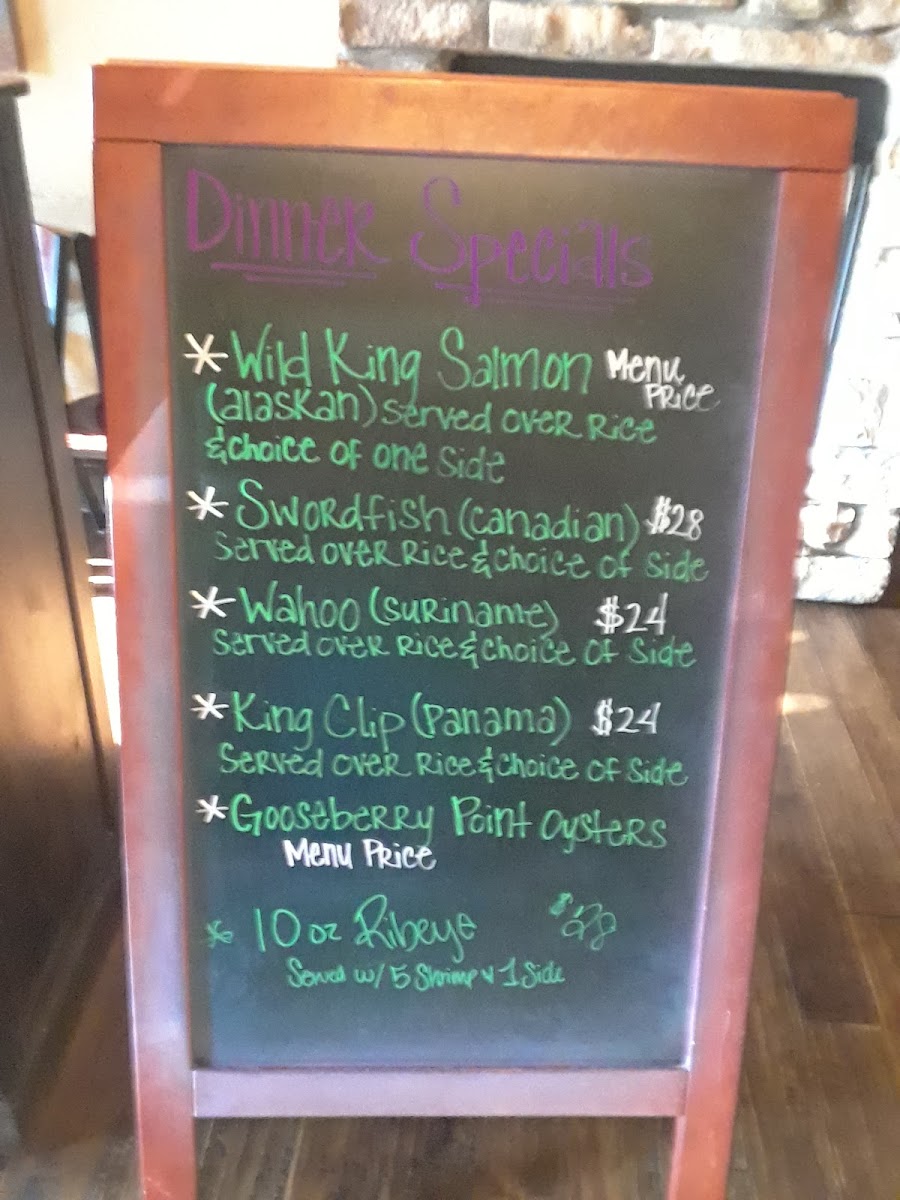 Dinner Specials
* Wild King Salmon Menu Price
(alaskan) served over Rice
& choice of one side
* Swordfish (Canadian) $28
Served over Rice & choice of side
* Wahoo (Suriname) $24
Served over Rice & choice of side
* King Clip (Panama) $24
Served over Rice & choice of side
* Gooseberry Point Oysters
Menu Price
* 10 oz Ribeye $28
Served w/ 5 Shrimp & 1 Side